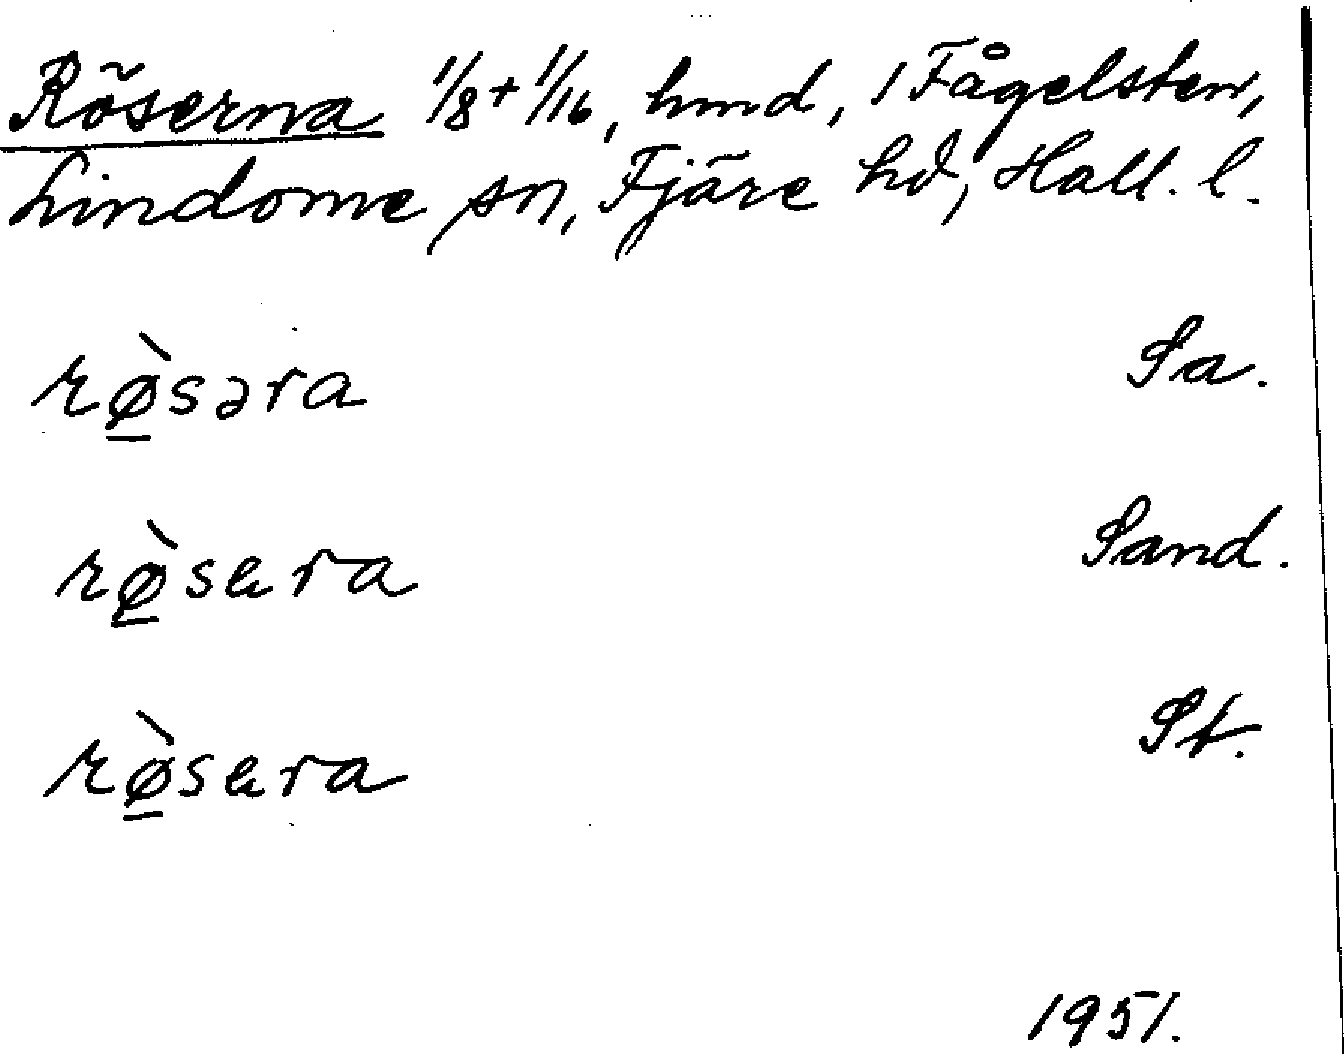 Röserna 1/8 + 1/16, hmd, 1 Fågelsten,
Lindome sn, Fjäre hd, Hall. l.
rø̱̀səra Sa.
rø̱̀særa Sand.
rø̱̀særa St.
1951.